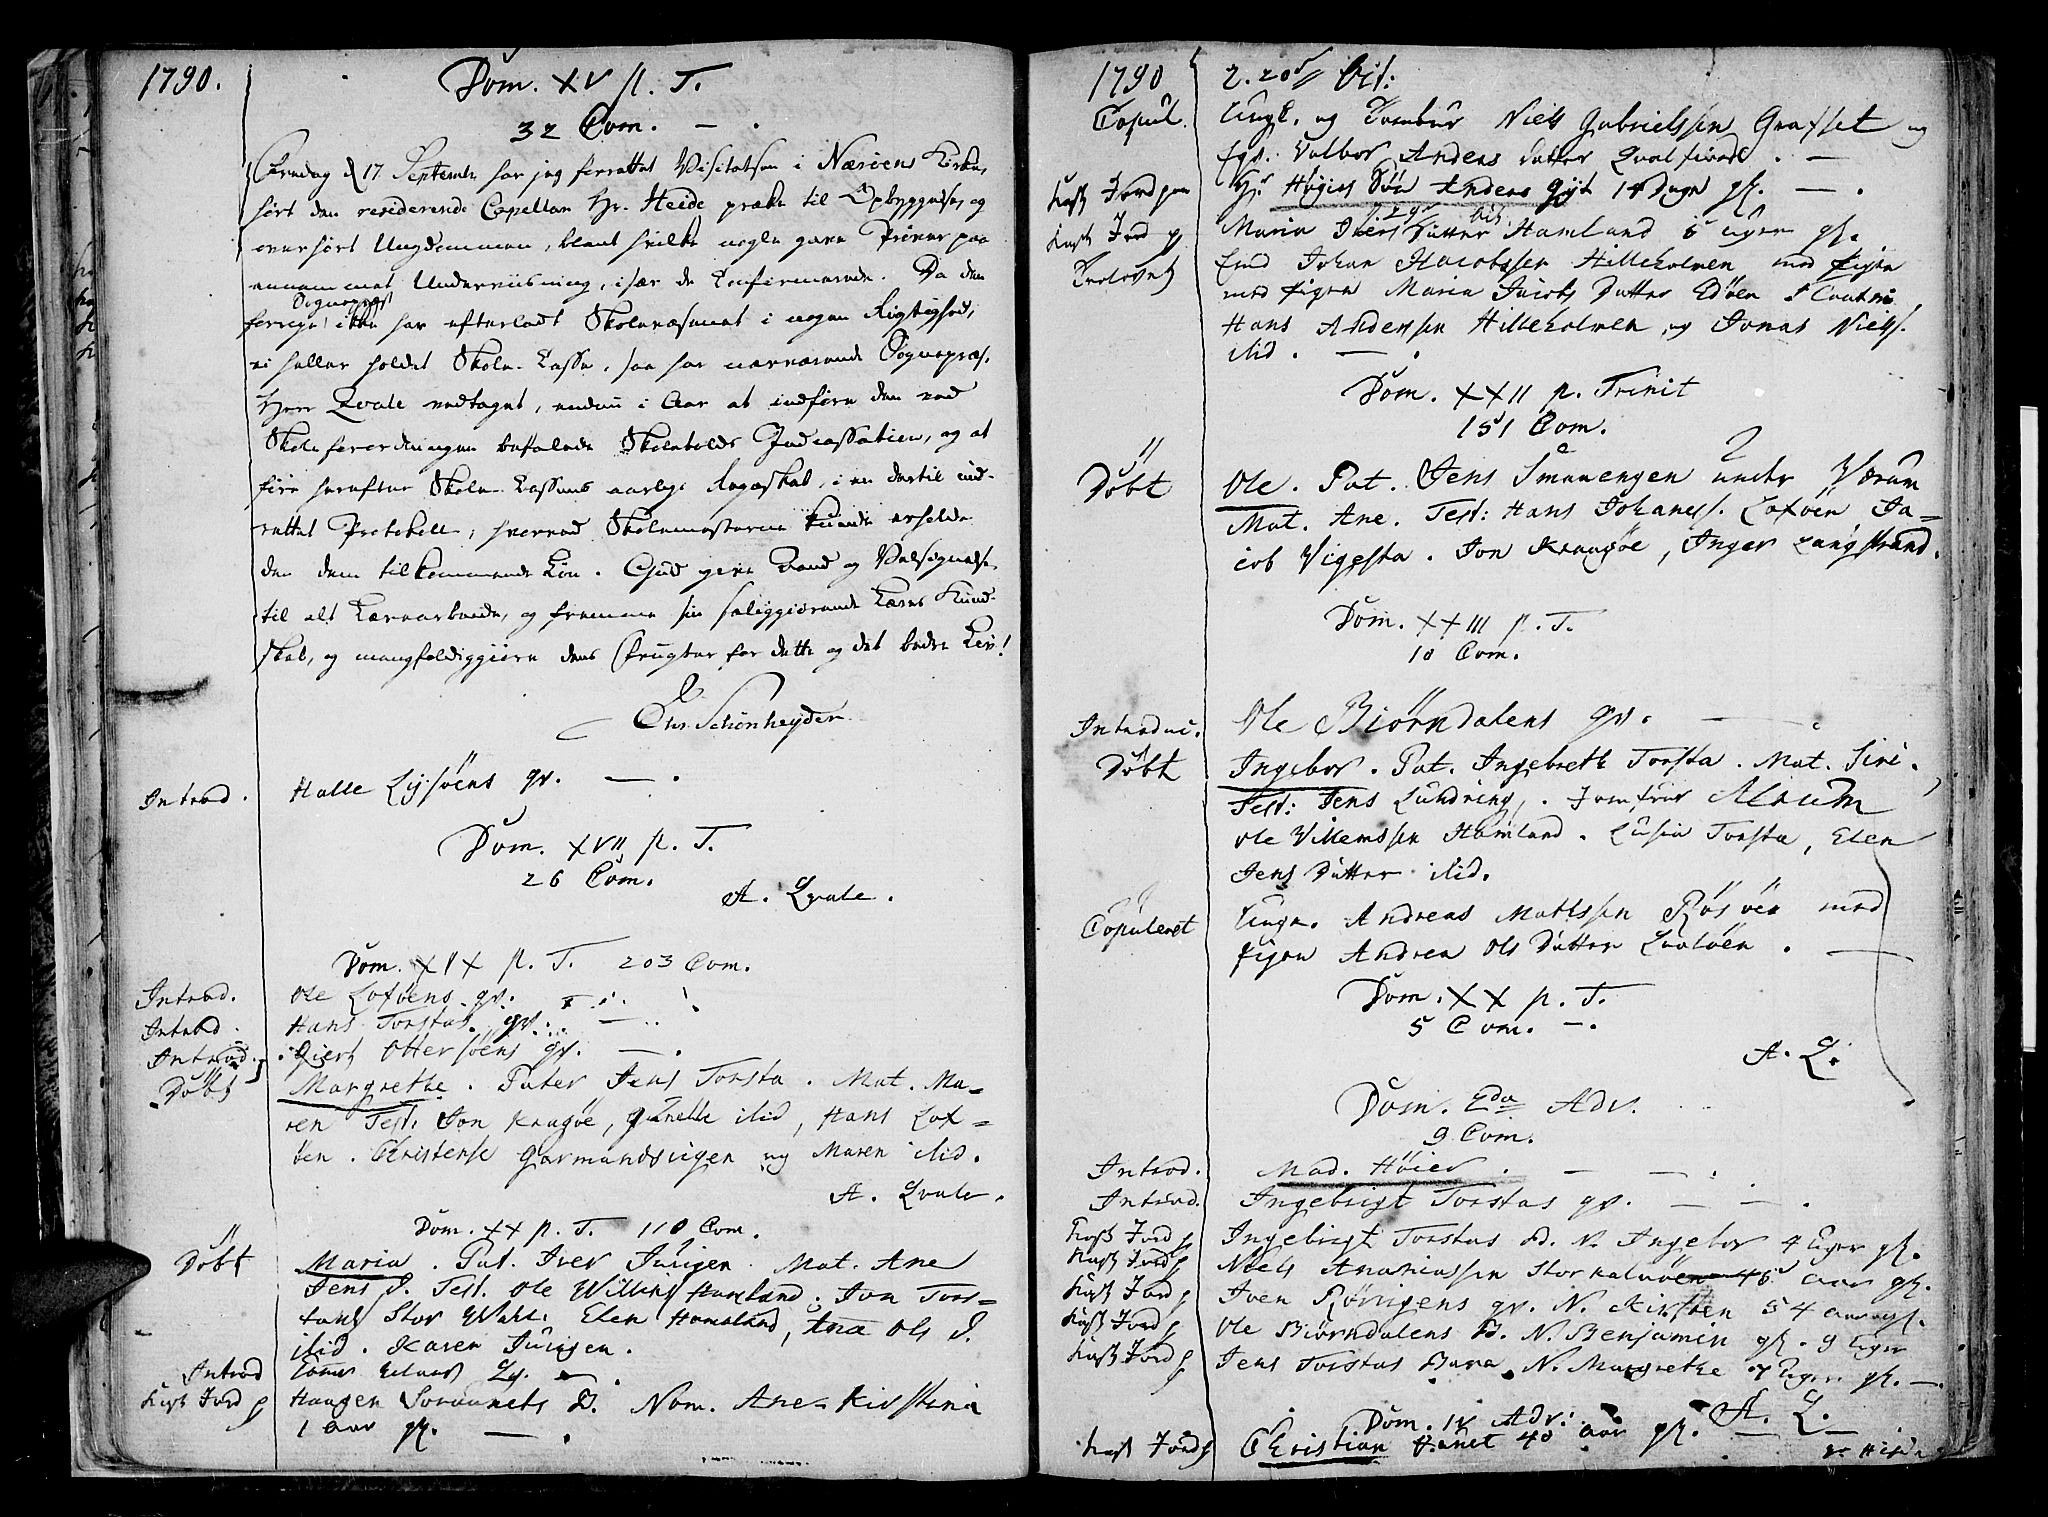 1790.
Dom. XV p. T.
32 Com. —
17 September har jeg forrettet Visitatsen i Næröens Kirke,
hört den residerende Capellan Hr. Heide præke til Opbyggelse, og
overhört Ungdommen, blant hvilke nogle gave Pröver paa
annammet Underviisning, især de Confirmerede. Da den
forrige Sognepræst ikke har efterladt Skolevæsenet i nogen Rigtighed,
ei heller holdet Skole-Cassa, saa har nærværende Sognepræst
Herr Qvale vedtaget, endnu i Aar at indföre den ved
Skoleforordningen befalede Skoleholds Indcassation, og at
före herefter Skole-Cassens aarlige Regnskab, i en dertil ind-
rettet Protokoll, hvorved Skolemesterne kunde erholde
den dem tilkommende Lön. Gud give Raad og Velsignelse
til alt Lærearbeide, og fremme sin saliggiörende Læres Kund-
skab, og mangfoldiggiöre dens Frugter for dette og det bedre Liv!
Chr. Schönheyder
Introd. Halle Lysöens qv. — .
Dom. XVII p. T.
26 Com.
A. Qvale.
Dom. XIX p. T. 203 Com.
Introd. Ole Lofoens qv.
Introd. Hans Torstas qv. —
Introd. Giert Ottersöens qv. — .
Döbt Margrethe. Pater Jens Torsta. Mat. Ma-
ren Test: Jon Kragöe, ilid, Hans Lof-
öen. Christense Garmandsvigen og Maren ilid.
A. Qvale.
Dom. XX p. T. 110 Com.
Döbt Maria. Pat. Iver Furigen. Mat. Ane
Jens D. Test. Ole Willms Hamland. Jon Tors-
tad, Elen Hamland, Ana Ols D.
ilid. Karen Furigen.
Introd
Kast Jord p Haagen D. Nom. Ane-Kirstina
1 Aar gl. — .
1790 2. 20
Copul. Ungk. og Niels Gabrielssen Grafset og
Valbor Anders Datter Qvalfiord. —
Kast Jord paa Hr Högiss Sön Anders 14 Dage gl. — .
Kast Jord p Maria Ivers Datter Hamland 5 Uger gl.
Trolovet Johan Jacobssen Hilleholmen med Pigen
Maria Jacobs Datter Edöen
Hans Anderssen Hilleholmen og Jonas Niels.
ilid. — .
Dom. XXII p. Trinit
151 Com.
Döbt Ole. Pat. Jens Smaaengen under Værum
Mat. Ane. Test: Hans Johaness. Lofoen Ja-
cob Vigesta. Jon Kraagöe, Inger Langstrand.
Dom. XXIII p. T.
10 Com.
Introduc. Ole Biörndalens qv. — .
Döbt Ingebor. Pat. Ingebreth Torsta. Mat. Siri.
Test: Jens Lundring. Jomfrue
Ole Villemssen Hamland. Lusia Torsta, Elen
Jens Datter ilid.
Copuleret Ungk. Andreas Matssen Rösöen med
Pigen Andrea Ols Datter . —
Dom. XX p. T.
5 Com. —.
A. Q.
Dom. 2da Adv.
9 Com.
Introd. Mad. Höier. — — .
Introd. Ingebrigt Torstas qv. — — .
Kast Jord p Ingebrigt Torstas B. N. Ingebor 4 Uger gl.
Kast Jord p Niels Ananiassen 45 aar gl.
Kast Jord p Joen Rörvigens qv. N. Kirsten 54 aar gl.
Kast Jord p Ole Biörndalens B. N. Benjamin gl. 9 Uger
Kast Jord p Jens Torstas Barn N. Margrethe 7 Uger gl. —.
A. Q.
Dom. IV Adv:
Kast Jord p Christian 40 aar gl. — —